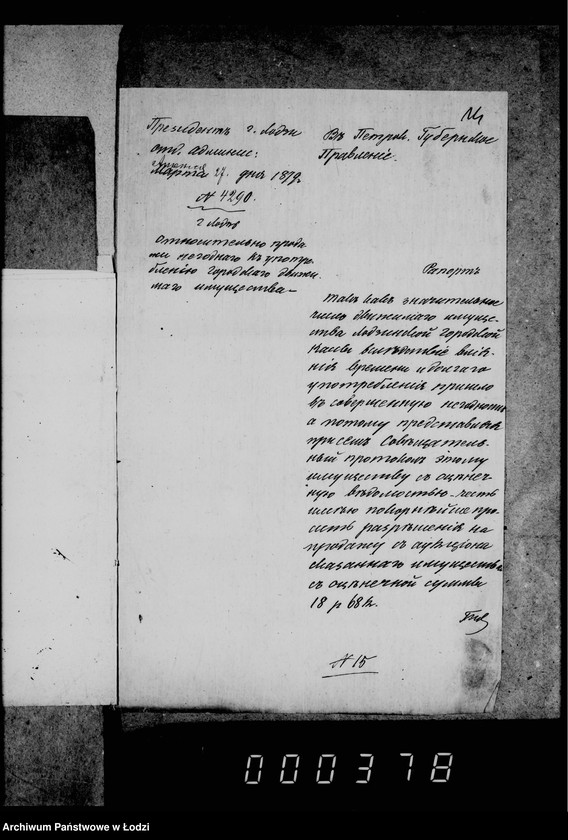 14
Президентъ г. Лодзи
отд. админис:
Апреля
Марта 27. дня 1879.
N 4290.
г. Лодзь
относительно прода
жи негоднаго къ употре
бленію городскаго движи
маго имущества—
Въ Петроков. Губернское
Правленіе.
Рапортъ
Такъ какъ значительное
число движимаго имуще-
ства Лодзинской Городской
Кассы вслѣдствіе влія-
нія времени и долгаго
употребленія пришло
въ совершенную негодность
а потому представивъ
при семъ Совѣщатель-
ный протоколъ этому
имуществу съ оцѣноч-
ную вѣдомостью-честь
имѣю покорнѣйше про-
сить разрѣшенія на
продажу съ аукціона
сказаннаго имущества
съ оцѣночной суммы
18 р 68 к.
N 15
000378
Archiwum Państwowe w Łodzi